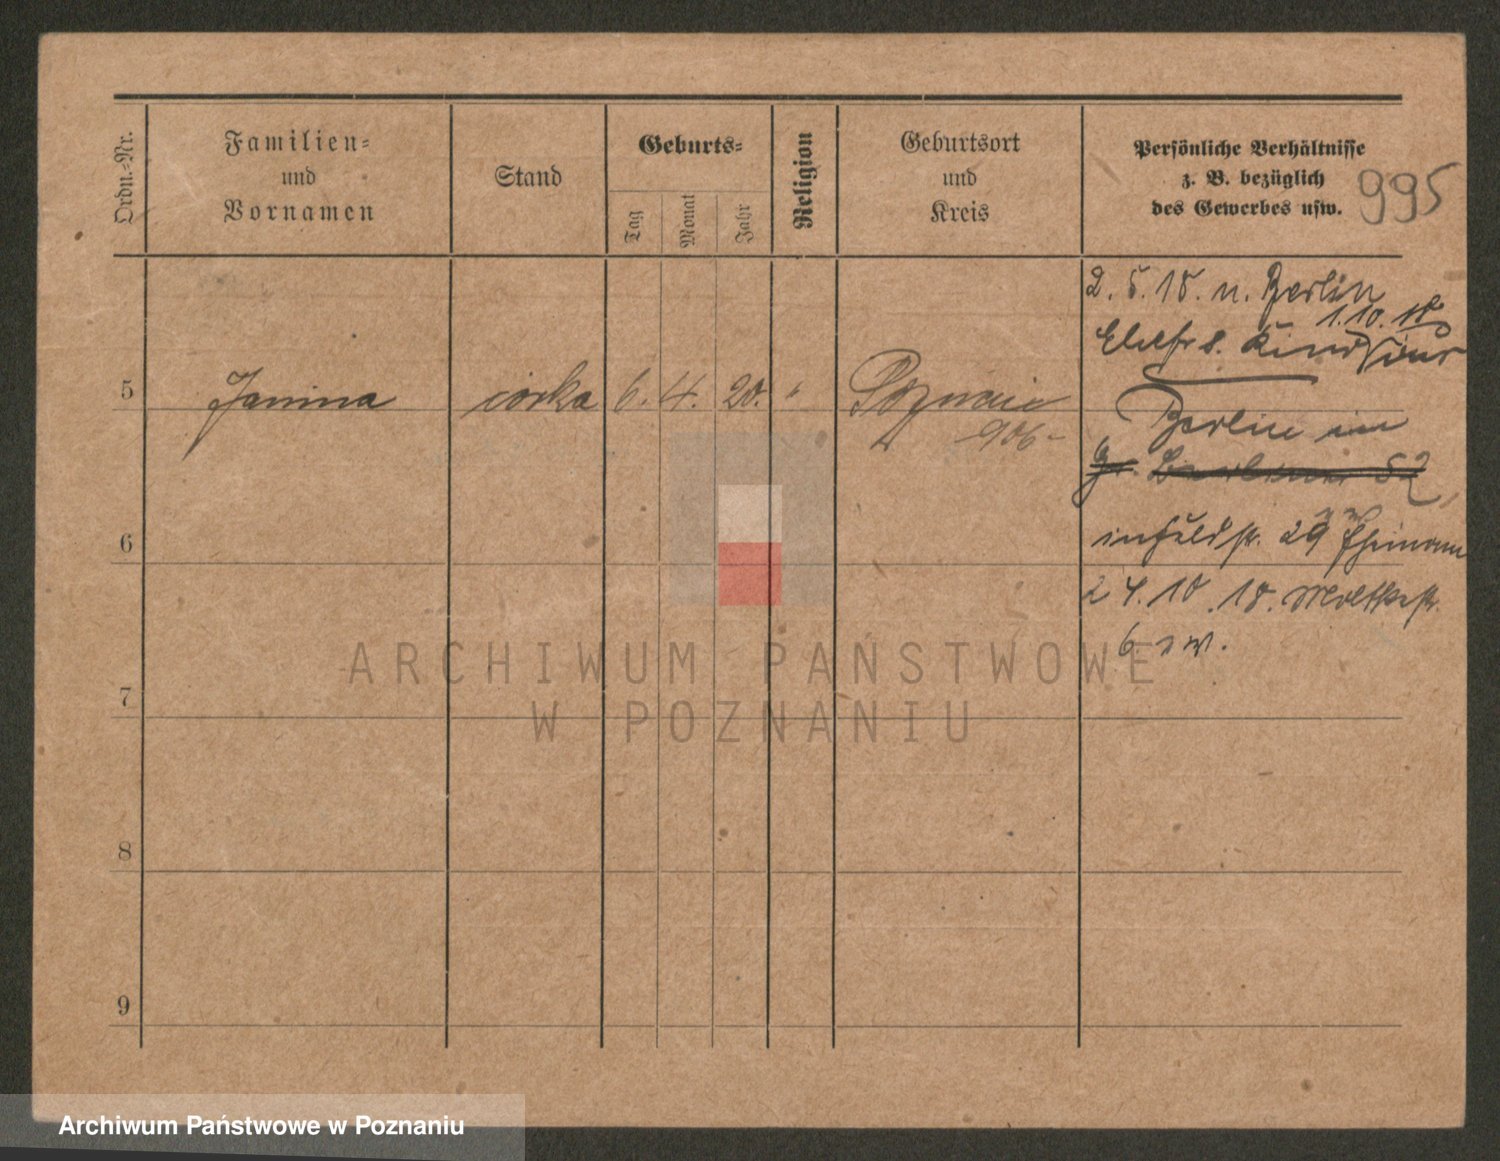 Ordn.-Nr.
Familien-
und
Vornamen
Stand
Geburts-
Tag
Monat
Jahr
Religion
Geburtsort
und
Kreis
Persönliche Verhältnisse
z. B. bezüglich
des Gewerbes usw.
995
2. 5. 18. n. Berlin
1.10. 18
5 Janina córka 6. 4. 20. " Poznań
906-
Berlin
52
6
29
24. 10. 18. Moltkestr.
6
7
8
9
ARCHIWUM PAŃSTWOWE
W POZNANIU
Archiwum Państwowe w Poznaniu